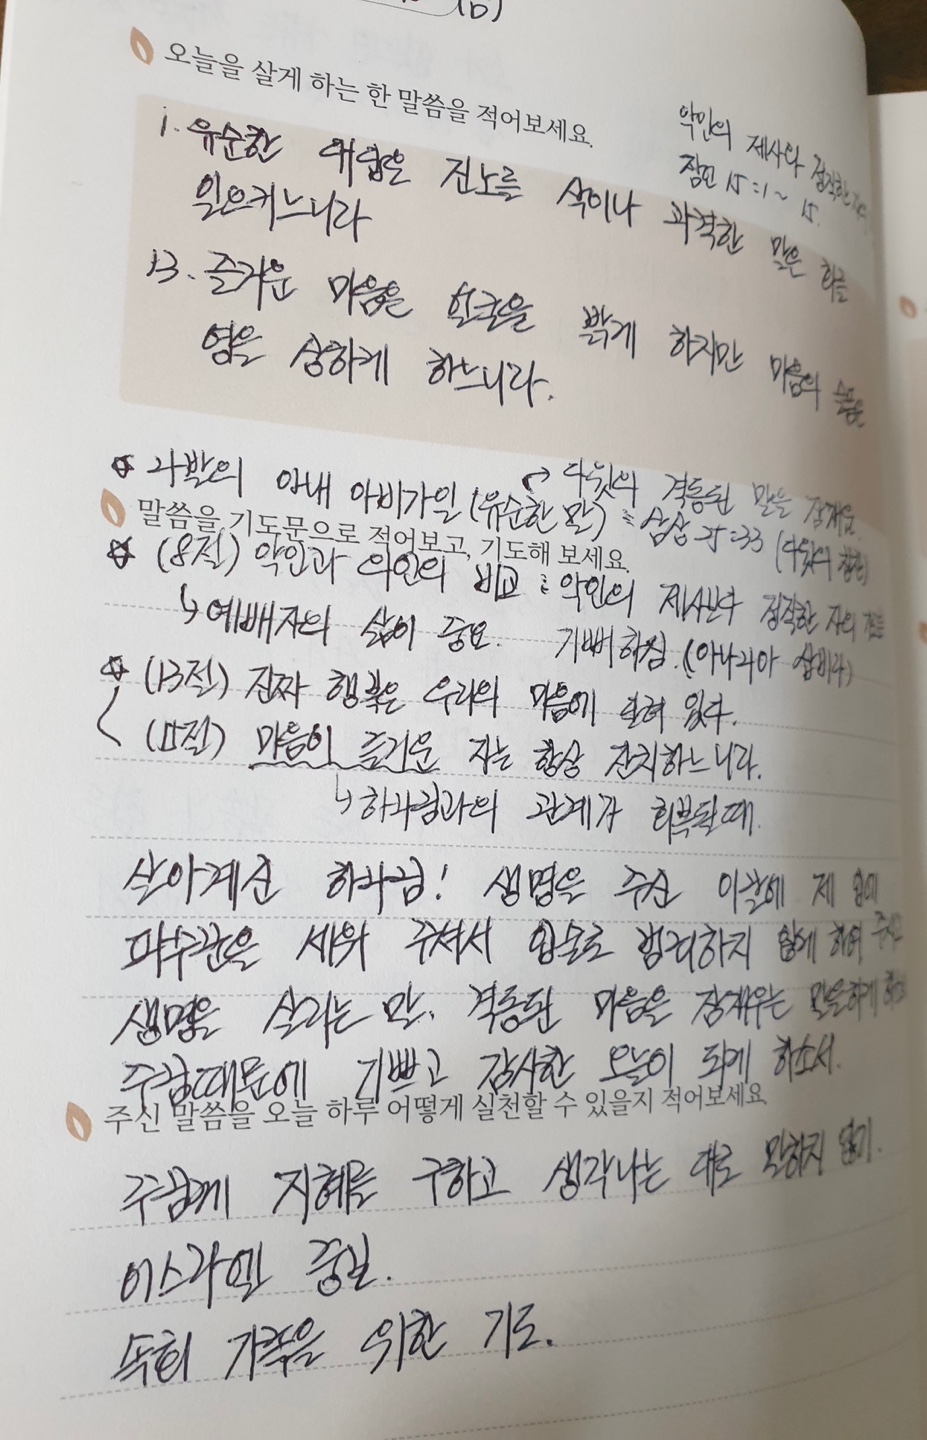 오늘을 살게 하는 한 말씀을 적어보세요.
악인의 제사와 정직한
잠언 15:1~15.
1. 유순한 대답은 진노를 쉬이나 과격한 말은 화를
일으키느니라
13. 즐거운 마음은 얼굴을 밝게 하지만 마음의 슬픔은
영을 상하게 하느니라.
나발의 아내 아비가일 (유순한 말) → 다윗의 격동된 말을 잠재움.
삼상 25:33 (다윗의 칭찬)
말씀을 기도문으로 적어보고, 기도해 보세요.
(8절) 악인과 의인의 비교 : 악인의 제사보다 정직한 자의 기도를
↳ 예배자의 삶이 중요. 기뻐하심. (아나니아 삽비라)
(13절) 진짜 행복은 우리의 마음에 달려 있다.
(15절) 마음이 즐거운 자는 항상 잔치하느니라.
↳ 하나님과의 관계가 회복될때.
살아계신 하나님! 생명을 주신 이날에 제 입에
파수꾼을 세워 주셔서 입술로 범죄하지 않게 하여 주시고
생명을 살리는 말. 격동된 마음을 잠재우는 말을하게
주님때문에 기쁘고 감사한 오늘이 되게 하소서.
주신 말씀을 오늘 하루 어떻게 실천할 수 있을지 적어보세요.
주님께 지혜를 구하고 생각나는 대로 말하지 않기.
이스라엘 중보.
특히 가족을 위한 기도.